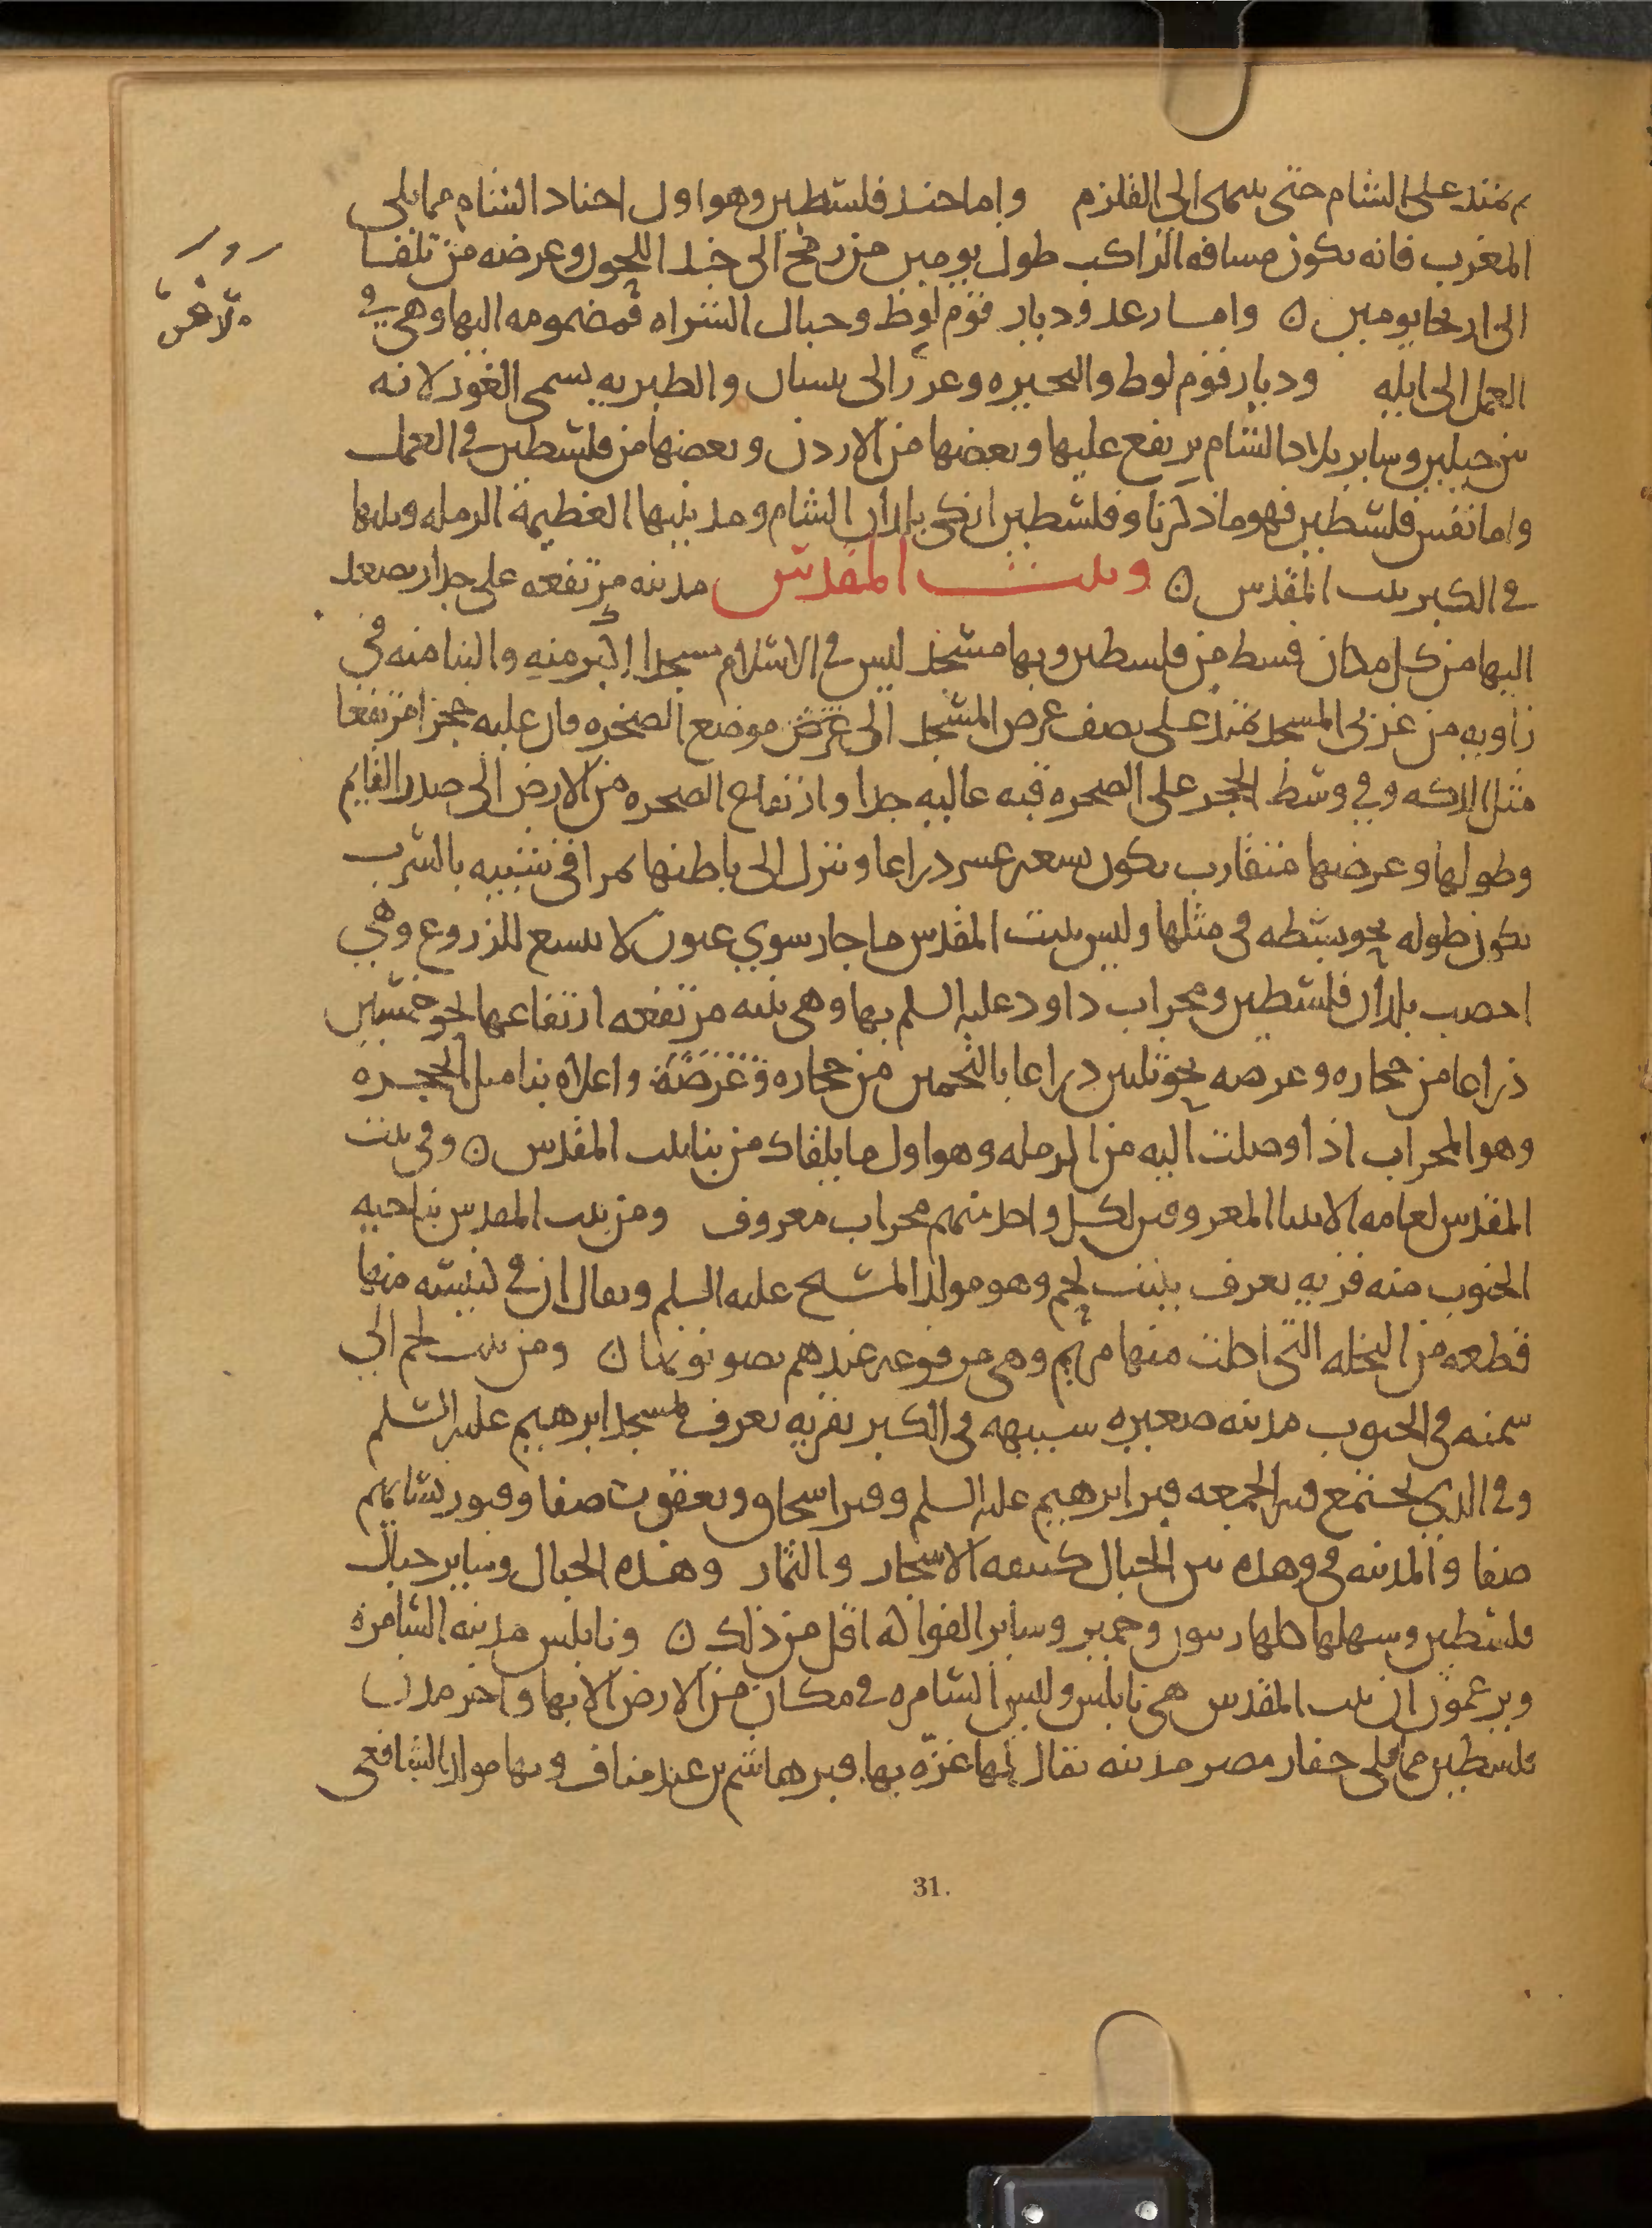 ثم يمتد على الشام حتى ينتهى الى القلزم واما جند فلسطين وهو اول اجناد الشام مما يلى
المغرب فانه يكون مسافه الراكب طول يومين من رفح الى حد اللجون وعرضه من يافا
الى اريحا يومين ن واما زغر وديار قوم لوط وجبال الشراه فمضمومه اليها وهى فى
العمل الى ايله وديار قوم لوط والبحيره وغزر الى بيسان والطبريه يسمى الغور لانه
بين جبلين وساير بلاد الشام يرتفع عليها وبعضها من الاردن وبعضها من فلسطين فى العمل
واما نفس فلسطين فهو ما ذكرنا وفلسطين ازكى بلدان الشام ومدينتها العظيمة الرمله ويليها
فى الكبر بيت المقدس ن وبيت المقدس مدينه مرتفعه على جبال يصعد
اليها من كل مكان قسط من فلسطين وبها مسجد ليس فى الاسلام مسجدا اكبر منه والبنا منه فى
زاويه من غربى المسجد يمتد على نصف عرض المسجد الى عرض موضع الصخره فان عليه حجرا مرتفعا
مثل الدكه وفى وسط الحجر على الصخره قبه عاليه جدا وارتفاع الصخره من الارض الى صدر القايم
وطولها وعرضها متقارب يكون بضعه عشر ذراعا وينزل الى باطنها بمراقى شبيه بالسرب
يكون طوله نحو بسطه فى مثلها وليس ببيت المقدس ما جار سوي عيون لا يتسع للزروع وهى
اخصب بلدان فلسطين ومحراب داود عليه السلم بها وهى بنيه مرتفعه ارتفاعها نحو خمسين
ذراعا من حجاره وعرضه نحو ثلثين ذراعا بالتخمين من حجاره وعرضه واعلاه بنا مثل الحجره
وهو المحراب اذا وصلت اليه من الرمله وهو اول ما يلقاك من بنا بيت المقدس ن وفى بيت
المقدس لعامه الانبيا المعروفين لكل واحد منهم محراب معروف ومن بيت المقدس بناحيه
الجنوب منه قريه يعرف ببيت لحم وهو مولد المسيح عليه السلم ويقال ان فى كنيسه منها
قطعه من النخله التى اكلت منها مريم وهى مرفوعه عندهم يصونونها ن ومن بيت لحم الي
سمته فى الجنوب مدينه صغيره شبيهه فى الكبر بقريه تعرف بمسجد ابرهيم عليه السلم
وفى الذي يجتمع فيه الجمعه قبر ابرهيم عليه السلم وقبر اسحاق ويعقوب صفا وقبور نسايهم
صفا والمدينه فى وهده بين الجبال كثيفه الاشجار والثمار وهذه الجبال وساير جبال
فلسطين وسهلها كلها زيتون وجميز وساير الفواكه اقل من ذلك ن ونابلس مدينه السامره
ويزعمون ان بيت المقدس هى نابلس وليس السامره فى مكان من الارض الا بها واخر مدن
فلسطين مما يلى جفار مصر مدينه يقال لها غزّه بها قبر هاشم بن عبد مناف وبها مولد الشافعى
31.